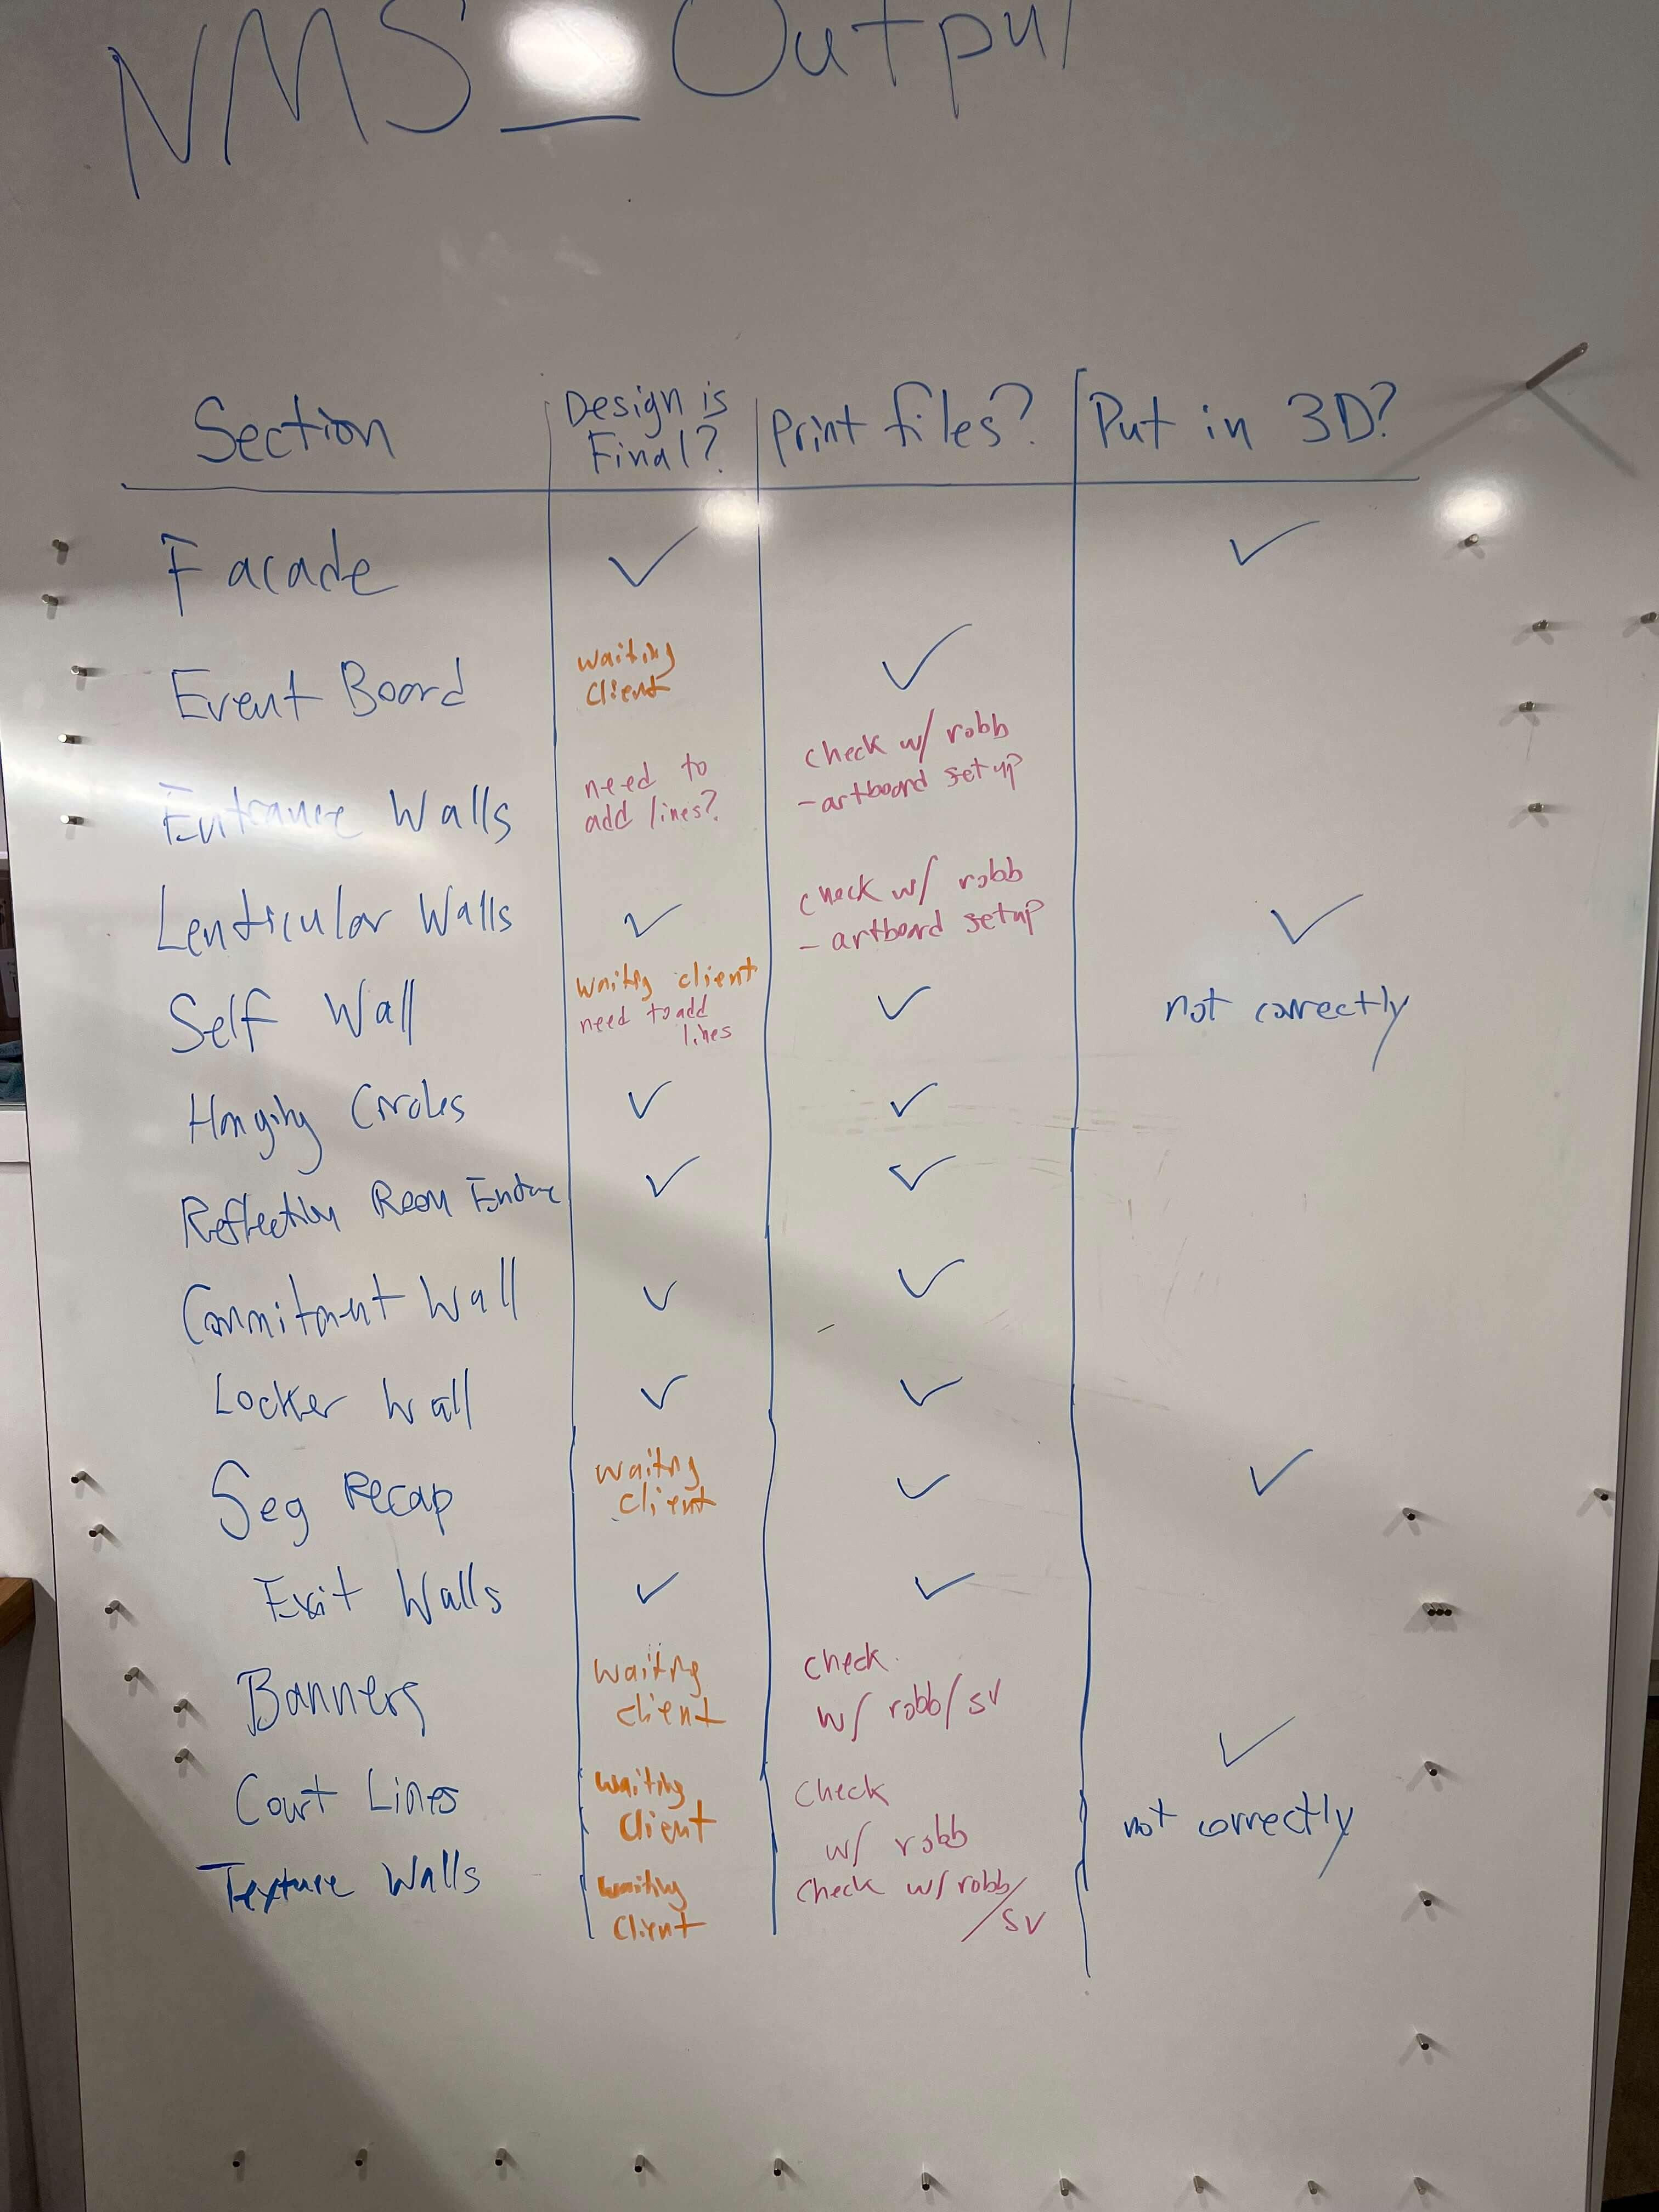 NMS_Output
Section Design is Final? Print files? Put in 3D?
Facade ✓ ✓
Event Board waiting client ✓
Entrance Walls need to add lines? check w/ robb - artboard setup
Lenticular Walls ✓ check w/ robb - artboard setup ✓
Self Wall waiting client need to add lines ✓ not correctly
Hanging Circles ✓ ✓
Reflection Room ✓ ✓
Commitment Wall ✓ ✓
Locker Wall ✓ ✓
Seg Recap waiting client ✓ ✓
Exit Walls ✓ ✓
Banners waiting client check w/ robb/sv ✓
Court Lines waiting client check w/ robb not correctly
Texture Walls waiting client check w/ robb/sv